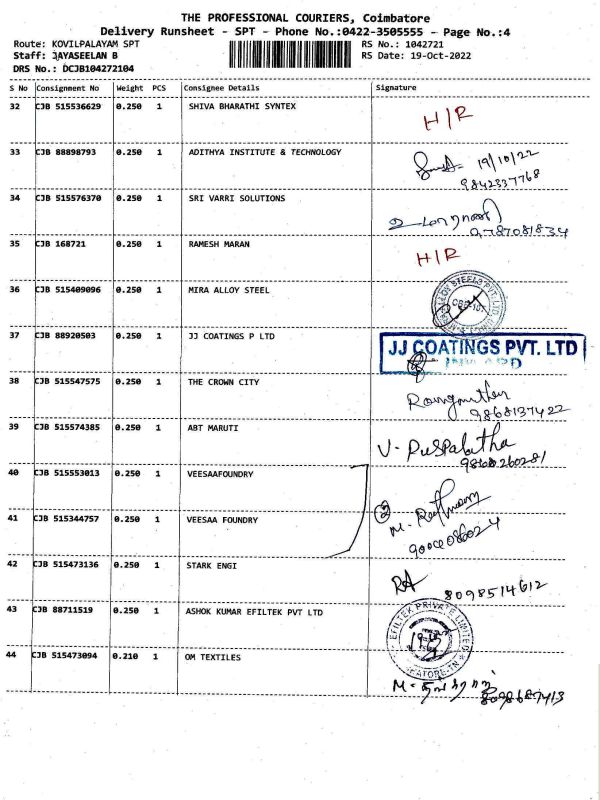 THE PROFESSIONAL COURIERS, Coimbatore
Delivery Runsheet - SPT - Phone No.:0422-3505555 - Page No.:4
Route: KOVILPALAYAM SPT RS No.: 1042721
Staff: JAYASEELAN B RS Date: 19-Oct-2022
DRS No.: DCJB104272104
S No Consignment No Weight PCS Consignee Details Signature
32 CJB 515536629 0.250 1 SHIVA BHARATHI SYNTEX H/R
33 CJB 88898793 0.250 1 ADITHYA INSTITUTE & TECHNOLOGY 19/10/22
9842337768
34 CJB 515576370 0.250 1 SRI VARRI SOLUTIONS
9787081834
35 CJB 168721 0.250 1 RAMESH MARAN H/R
36 CJB 515409096 0.250 1 MIRA ALLOY STEEL
37 CJB 88920503 0.250 1 JJ COATINGS P LTD JJ COATINGS PVT. LTD
38 CJB 515547575 0.250 1 THE CROWN CITY
9868137422
39 CJB 515574385 0.250 1 ABT MARUTI V- Puspalatha
40 CJB 515553013 0.250 1 VEESAAFOUNDRY
41 CJB 515344757 0.250 1 VEESAA FOUNDRY 2
42 CJB 515473136 0.250 1 STARK ENGI RA
8098514612
43 CJB 88711519 0.250 1 ASHOK KUMAR EFILTEK PVT LTD EFILTEK PRIVATE LIMITED
44 CJB 515473094 0.210 1 OM TEXTILES